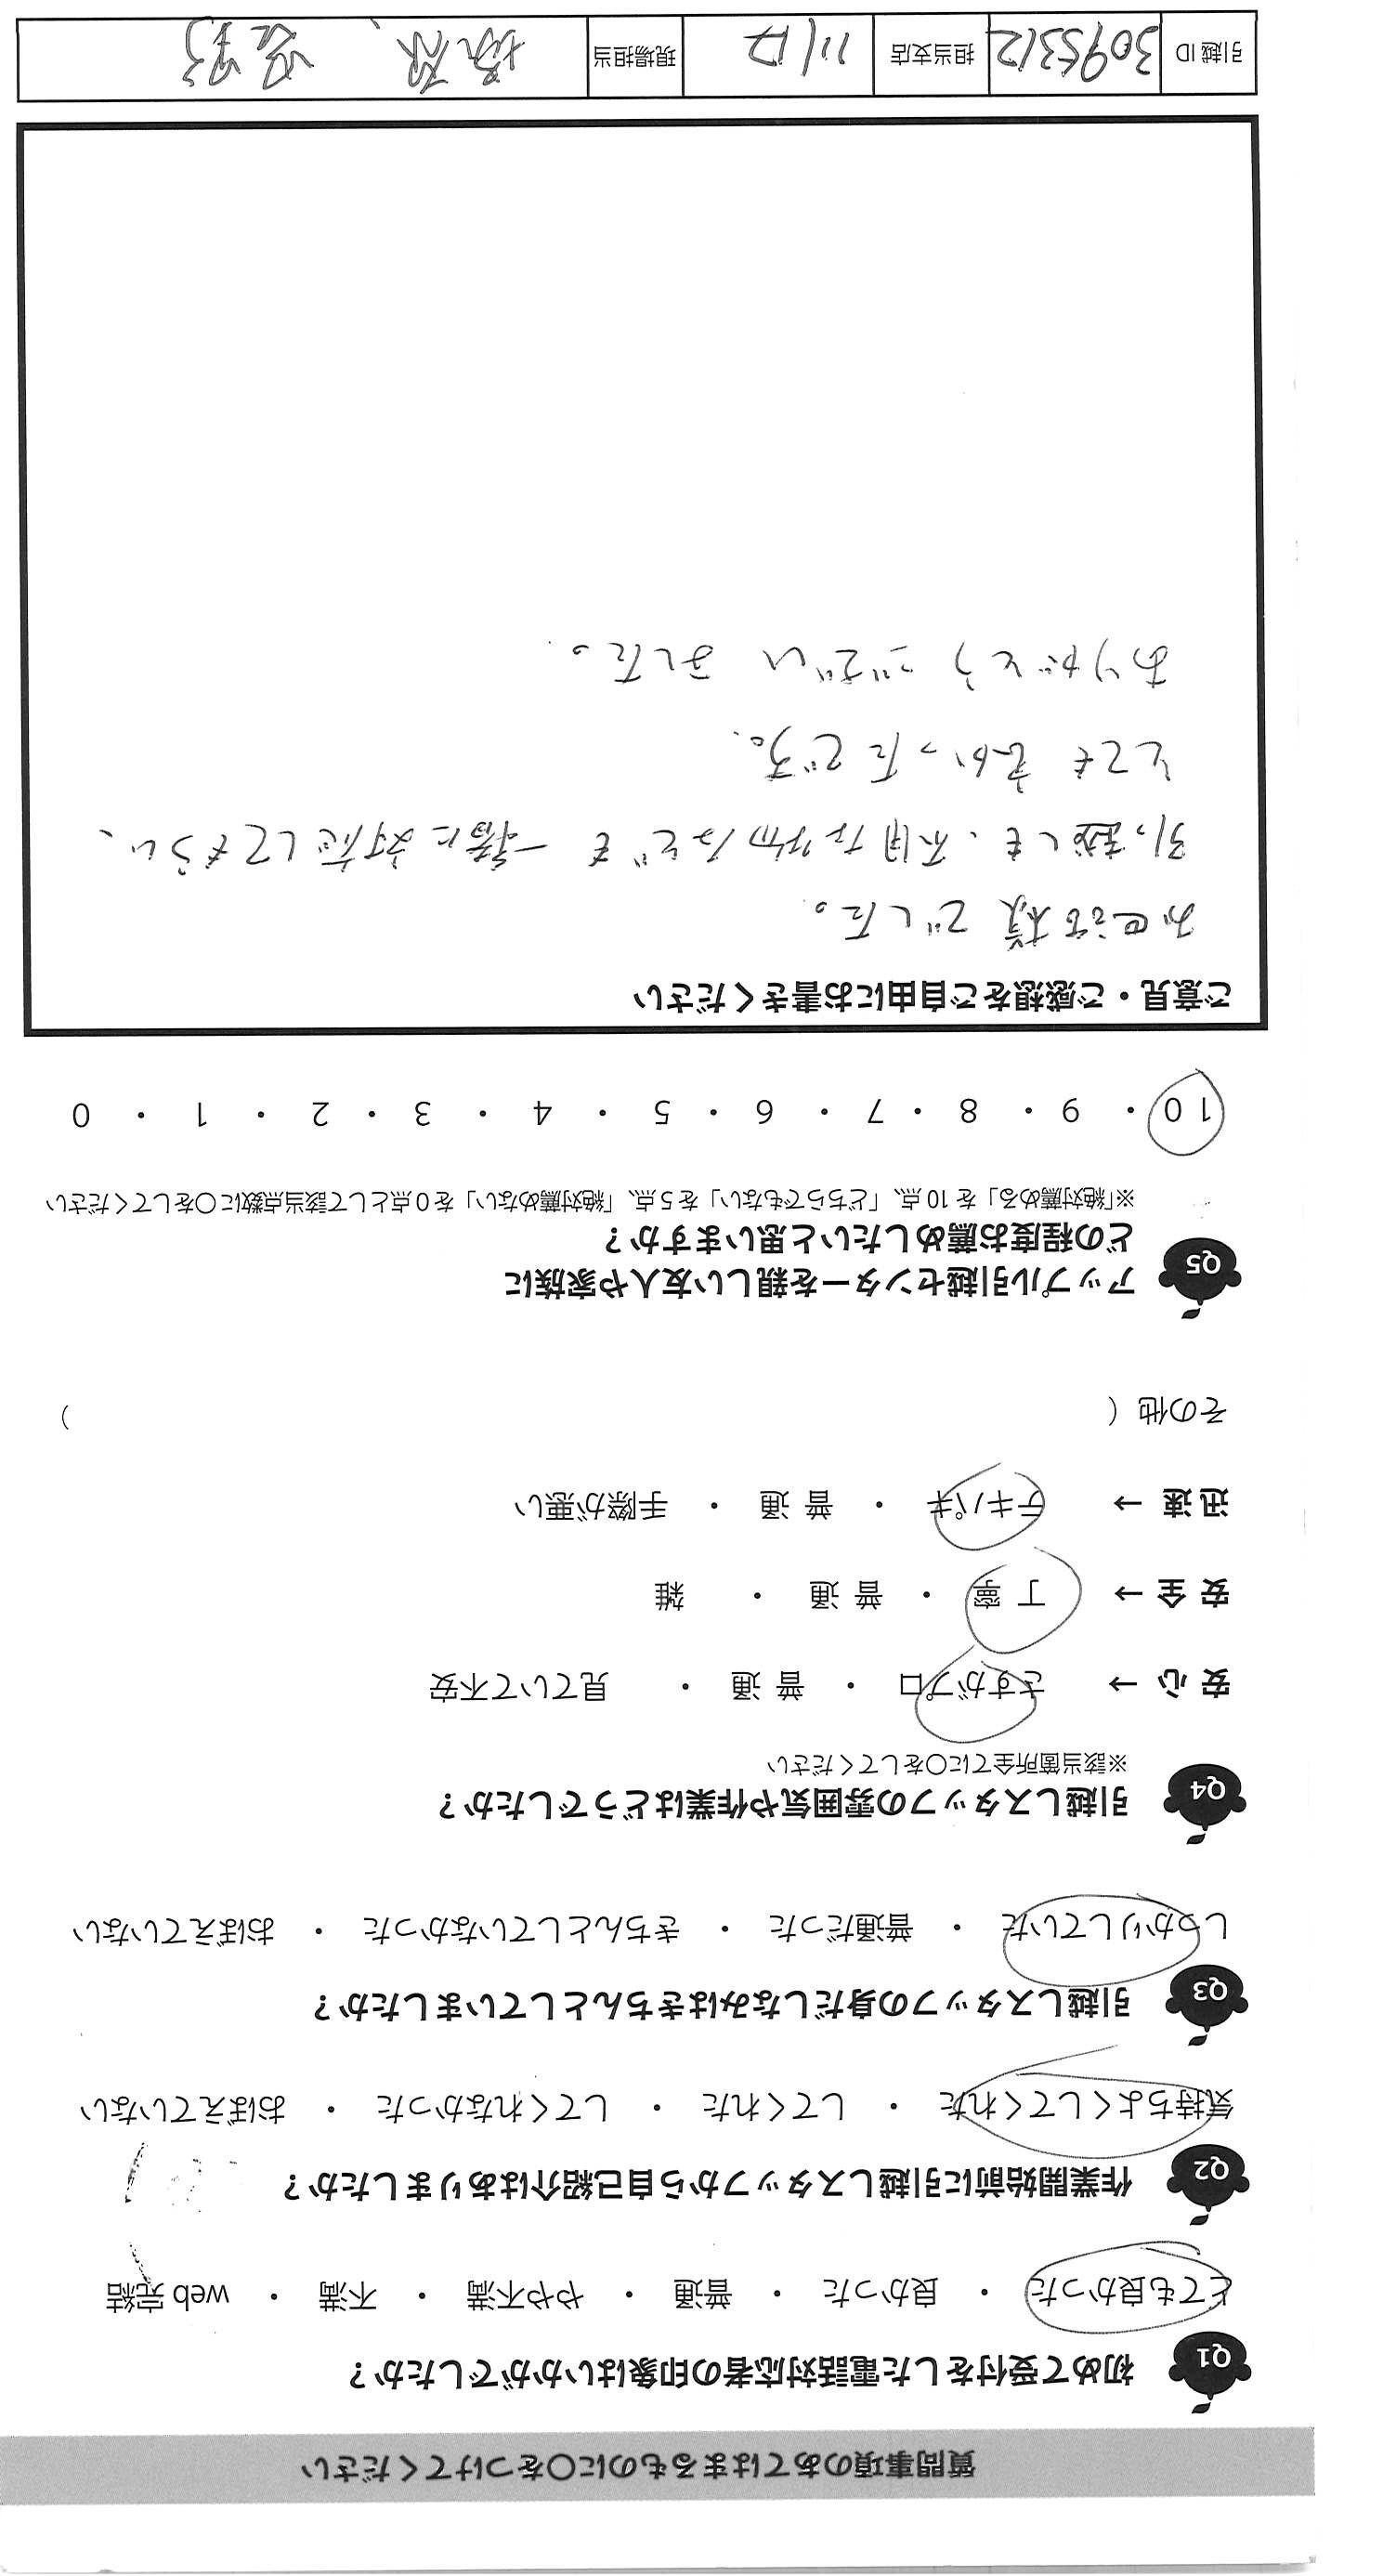 質問事項のあてはまるものに〇をつけてください
Q1 初めて受付をした電話対応者の印象はいかがでしたか？
とても良かった ・ 良かった ・ 普通 ・ やや不満 ・ 不満 ・ web 完結
Q2 作業開始前に引越しスタッフから自己紹介はありましたか？
気持ちよくしてくれた ・ してくれた ・ してくれなかった ・ おぼえていない
Q3 引越しスタッフの身だしなみはきちんとしていましたか？
しっかりしていた ・ 普通だった ・ きちんとしていなかった ・ おぼえていない
Q4 引越しスタッフの雰囲気や作業はどうでしたか？
※該当箇所全てに〇をしてください
安 心 → さすがプロ ・ 普 通 ・ 見ていて不安
安 全 → 丁 寧 ・ 普 通 ・ 雑
迅 速 → テキパキ ・ 普 通 ・ 手際が悪い
その他（ ）
Q5 アップル引越センターを親しい友人や家族に
どの程度お薦めしたいと思いますか？
※「絶対薦める」を 10 点、「どちらでもない」を 5 点、「絶対薦めない」を 0 点として該当点数に〇をしてください
10 ・ 9 ・ 8 ・ 7 ・ 6 ・ 5 ・ 4 ・ 3 ・ 2 ・ 1 ・ 0
ご意見・ご感想をご自由にお書きください
お世話様でした。
引越しも、不用な物なども一緒に対応してもらい、
とてもよかったです。
ありがとうございました。
引越 ID 3095312 担当支店 川口 現場担当